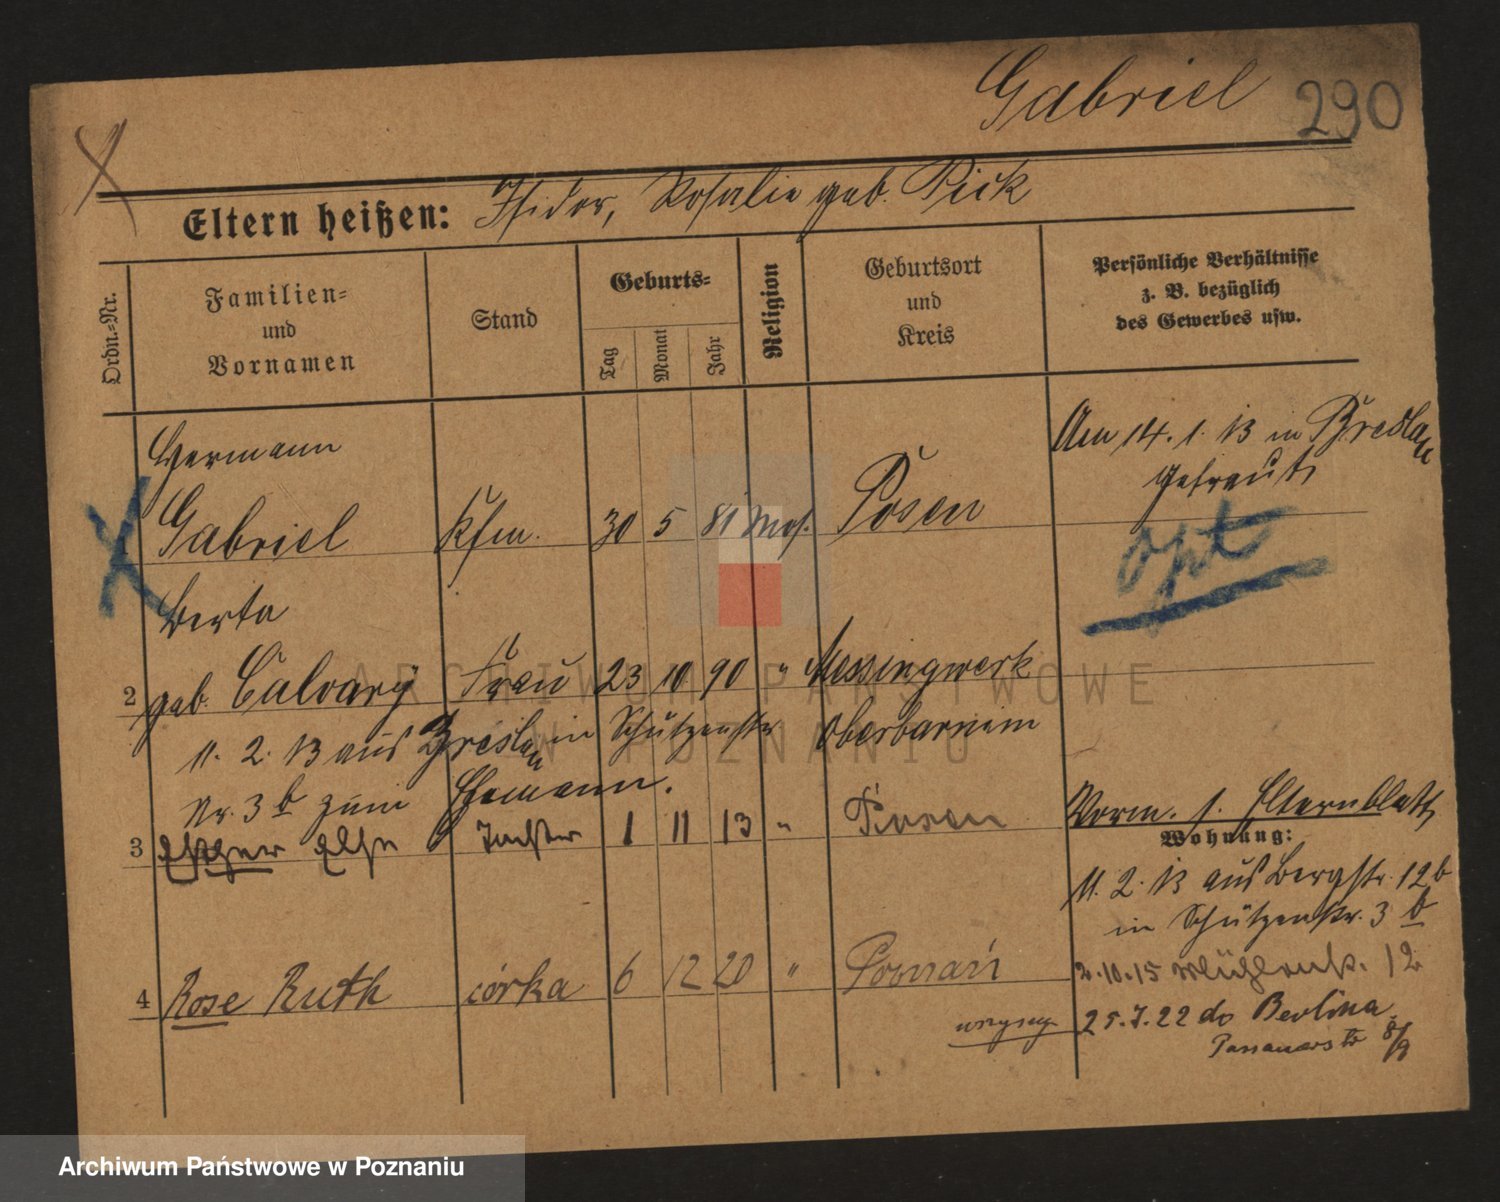 Gabriel 290
Eltern heißen: Isidor, Rosalie geb. Pick
Ordn.-Nr.
Familien- und Vornamen
Stand
Geburts-
Tag
Monat
Jahr
Religion
Geburtsort und Kreis
Persönliche Verhältnisse
z. B. bezüglich
des Gewerbes usw.
Hermann
Gabriel Kfm. 30 5 81 Mos. Posen
Am 14. 1. 13 in Breslau
getraut
opt
Berta
2 geb. Calvary Frau 23 10 90 " Messingwerk
Oberbarnim
11. 2. 13 aus Breslau in Schützenstr
Nr. 3 b zum Ehemann.
3 Esther Else Tochter 1 11 13 " Posen
Vorm. s. Elternblatt
Wohnung:
11. 2. 13 aus Bergstr. 12b
in Schützenstr. 3 b
4 Rose Ruth córka 6 12 20 " Poznań
2.10.15 Mühlenstr. 12
25.7.22 do Berlina
Passauerstr 8/9
ARCHIWUM PAŃSTWOWE
W POZNANIU
Archiwum Państwowe w Poznaniu